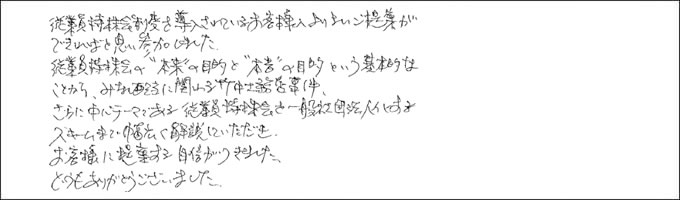 従業員持株会制度を導入されているお客様へよりよいご提案が
できればと思い参加しました。
従業員持株会の“本来”の目的と“本音”の目的という基本的な
ことから、みなし配当に関する竹中土訴訟事件、
さらに中心テーマである従業員持株会を一般社団法人化する
スキームまで幅広く解説していただき、
お客様に提案する自信がつきました。
どうもありがとうございました。